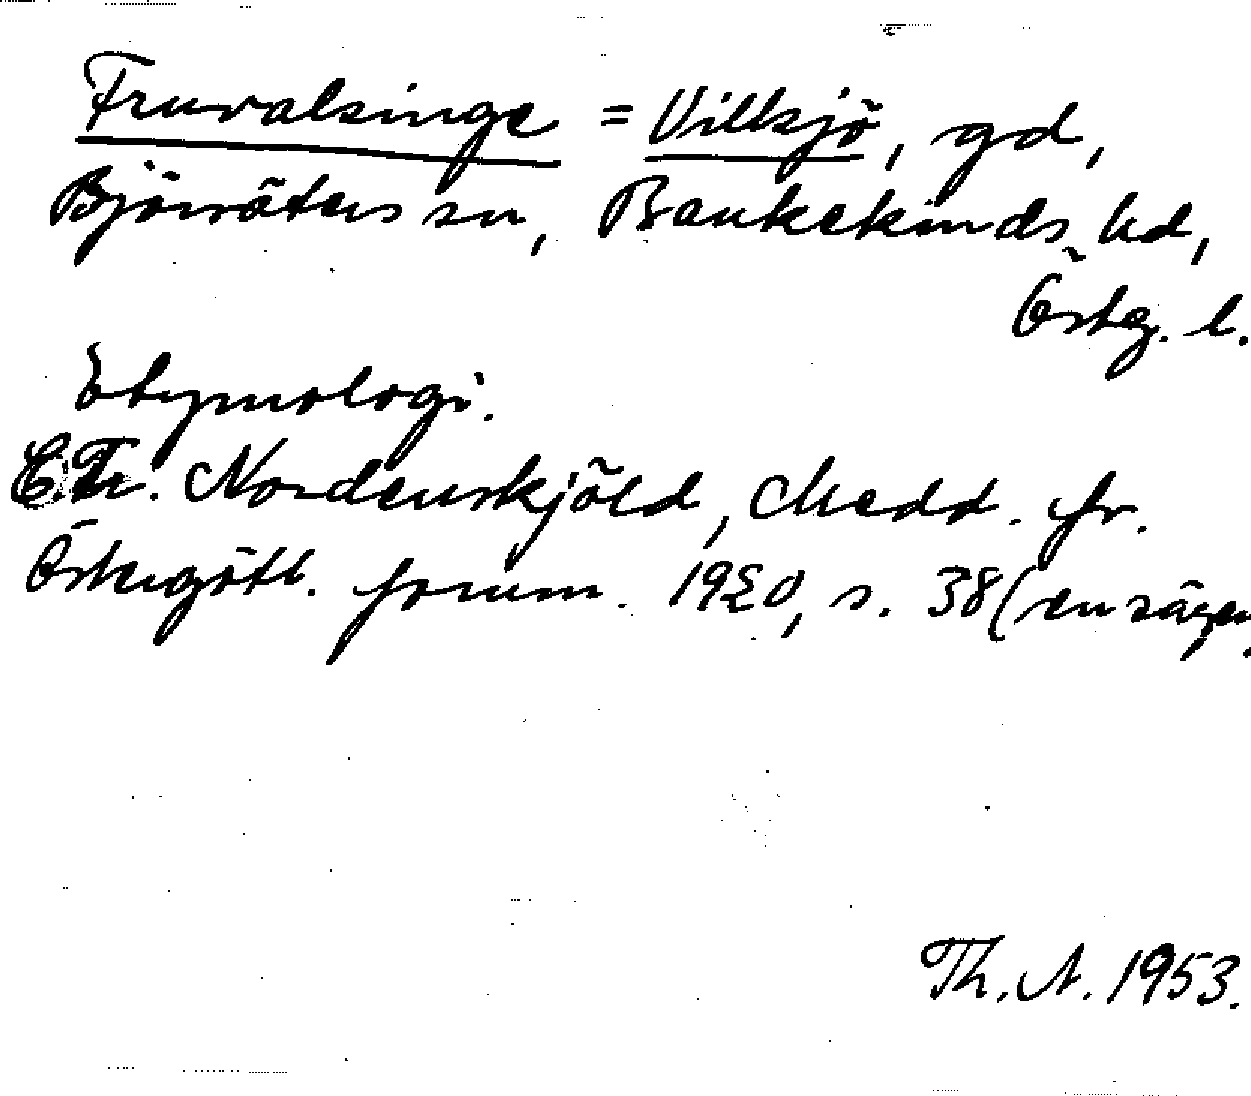 Fruvalsinge = Villsjö, gd,
Björsäters sn, Bankekinds hd,
Östg. l.
Etymologi.
C. Fr. Nordenskjöld, Medd. fr.
Östergötl. fornm. 1920, s. 38 (en sägen
Th. A. 1953.